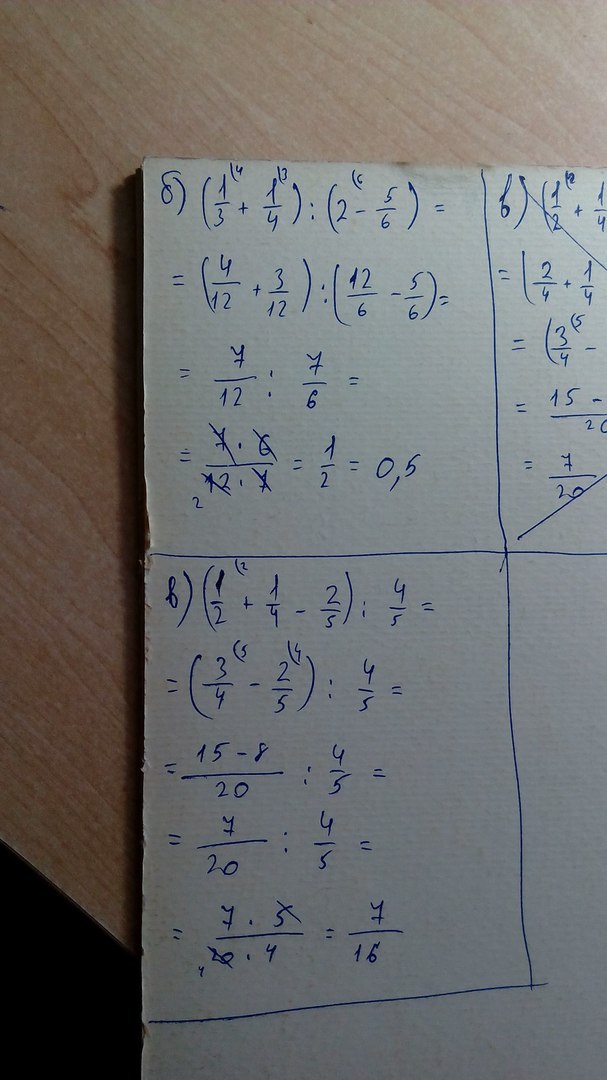 б) (1/3 (4 + 1/4 (3) : (2 (6 - 5/6) =
= (4/12 + 3/12) : (12/6 - 5/6) =
= 7/12 : 7/6 =
= 7 · 6 / 12 · 7 = 1/2 = 0,5
2
в) (1/2 (2 + 1/4
= (2/4 + 1/4
= (3/4 (5 -
= 15 - / 20
= 7/20
в) (1/2 (2 + 1/4 - 2/5) : 4/5 =
= (3/4 (5 - 2/5 (4) : 4/5 =
= 15 - 8 / 20 : 4/5 =
= 7/20 : 4/5 =
= 7 · 5 / 20 · 4 = 7/16
4